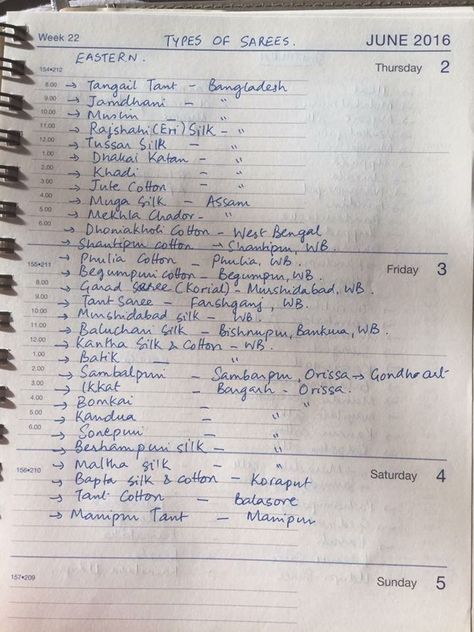 Week 22 TYPES OF SAREES. JUNE 2016
EASTERN. Thursday 2
154•212
8.00 → Tangail Tant - Bangladesh
9.00 → Jamdhani - "
10.00 → Muslin - "
11.00 → Rajshahi (Eri) Silk - "
12.00 → Tussar Silk - "
1.00 → Dhakai Katan - "
2.00 → Khadi - "
3.00 → Jute Cotton - "
4.00 → Muga Silk - Assam
5.00 → Mekhla Chador - "
6.00 → Dhoniakholi Cotton - West Bengal
→ Shantipur cotton → Shantipur, WB.
155•211 → Phulia Cotton - Phulia, WB. Friday 3
→ Begumpuri cotton - Begumpur, WB.
8.00 → Garad saree (Korial) - Murshidabad, WB.
9.00 → Tant Saree - Farshganj, WB.
10.00 → Murshidabad silk - WB.
11.00 → Baluchari silk - Bishnupur, Bankura, WB.
12.00 → Kantha Silk & Cotton - WB.
1.00 → Batik - "
2.00 → Sambalpuri - Sambarpur, Orissa → Gondho art
3.00 → Ikkat - Bargarh - Orissa.
4.00 → Bomkai - "
5.00 → Kandua - "
6.00 → Sonepuri - "
→ Berhampuri silk - "
156•210 → Maltha silk - " Saturday 4
→ Bapta silk & cotton - Koraput
→ Tant Cotton - Balasore
→ Manipur Tant - Manipur
157•209 Sunday 5